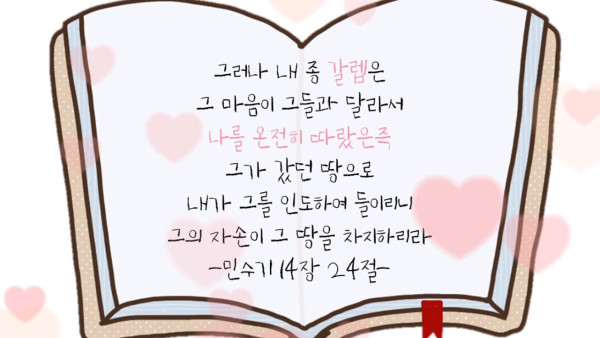 그러나 내 종 갈렙은
그 마음이 그들과 달라서
나를 온전히 따랐은즉
그가 갔던 땅으로
내가 그를 인도하여 들이리니
그의 자손이 그 땅을 차지하리라
-민수기 14장 24절-